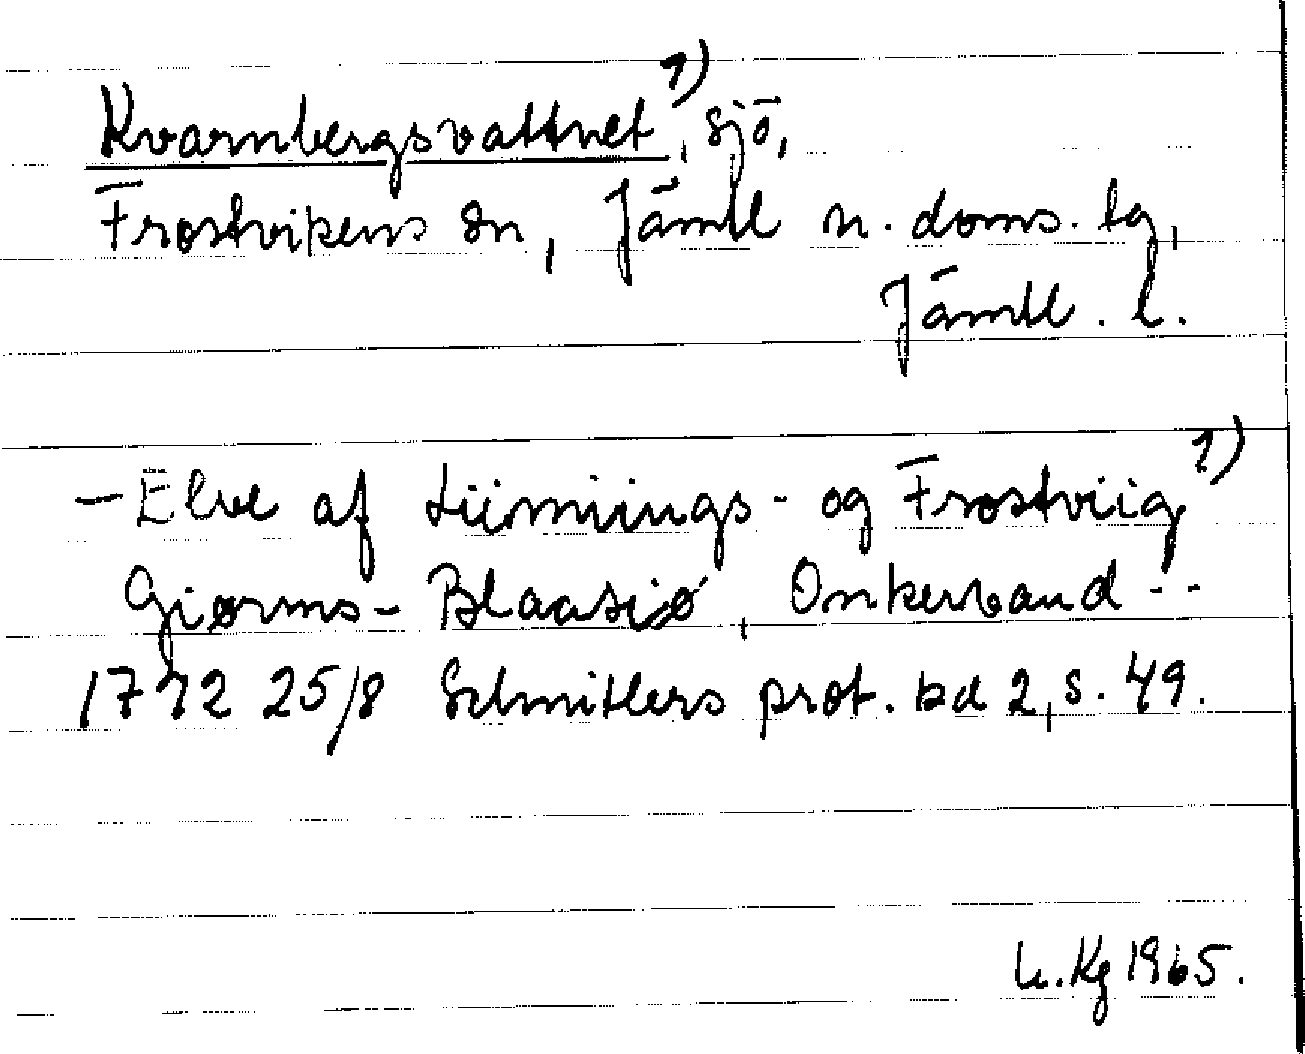 Kvarnbergsvattnet ¹⁾, sjö,
Frostvikens sn, Jämtl n. doms. lg,
Jämtl. l.
— Elve af Liimiings- og Frostviig ¹⁾
Giørms- Blaasiø, Onkervand --
1742 25/8 Schnitlers prot. bd 2, s. 49.
L. Kg 1965.